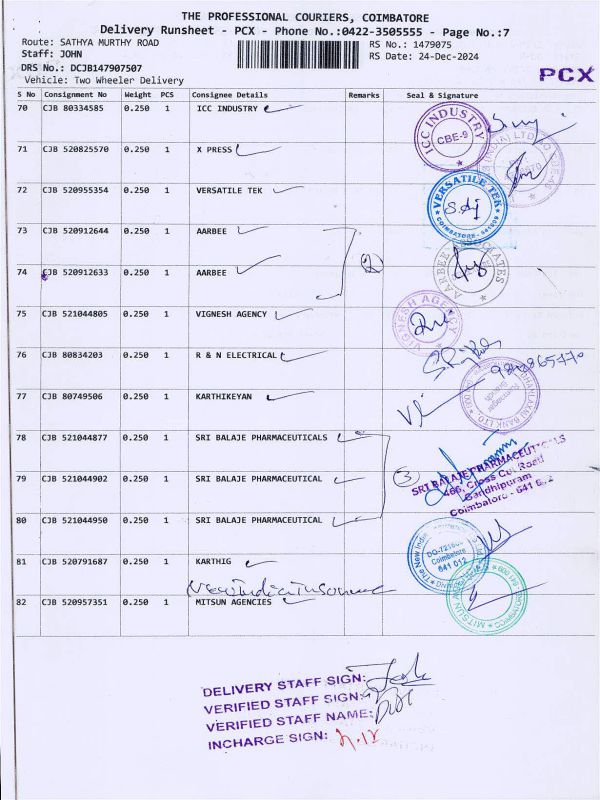 THE PROFESSIONAL COURIERS, COIMBATORE
Delivery Runsheet - PCX - Phone No.:0422-3505555 - Page No.:7
Route: SATHYA MURTHY ROAD RS No.: 1479075
Staff: JOHN RS Date: 24-Dec-2024
DRS No.: DCJB147907507
Vehicle: Two Wheeler Delivery
PCX
S No Consignment No Weight PCS Consignee Details Remarks Seal & Signature
70 CJB 80334585 0.250 1 ICC INDUSTRY
ICC INDUSTRY CBE-9
71 CJB 520825570 0.250 1 X PRESS
72 CJB 520955354 0.250 1 VERSATILE TEK
VERSATILE TEK COIMBATORE
73 CJB 520912644 0.250 1 AARBEE
2
74 CJB 520912633 0.250 1 AARBEE
AARBEE ASSOCIATES
75 CJB 521044805 0.250 1 VIGNESH AGENCY
VIGNESH AGENCY
76 CJB 80834203 0.250 1 R & N ELECTRICAL
77 CJB 80749506 0.250 1 KARTHIKEYAN
78 CJB 521044877 0.250 1 SRI BALAJE PHARMACEUTICALS
79 CJB 521044902 0.250 1 SRI BALAJE PHARMACEUTICAL
3
SRI BALAJE PHARMACEUTICALS
466, Cross Cut Road
Gandhipuram
Coimbatore - 641
80 CJB 521044950 0.250 1 SRI BALAJE PHARMACEUTICAL
81 CJB 520791687 0.250 1 KARTHIG
Coimbatore
641 012
New India Insurance
82 CJB 520957351 0.250 1 MITSUN AGENCIES
DELIVERY STAFF SIGN:
VERIFIED STAFF SIGN:
VERIFIED STAFF NAME:
INCHARGE SIGN: